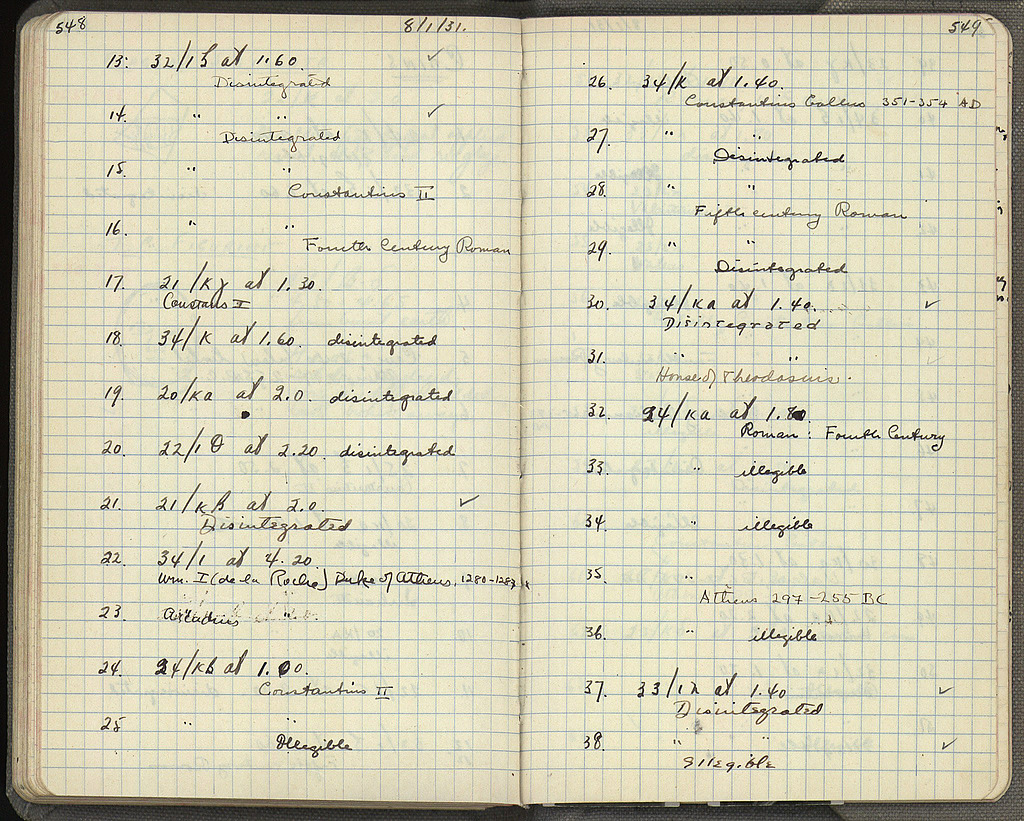 548
8/1/31.
13: 32/ΙϚ at 1.60.
Disintegrated
14. " "
Disintegrated
15. " "
Constantius II
16. " "
Fourth Century Roman
17. 21/ΚΖ at 1.30.
Constans II
18. 34/Κ at 1.60. disintegrated
19. 20/ΚΑ at 2.0. disintegrated
20. 22/ΙΘ at 2.20. disintegrated
21. 21/ΚΒ at 2.0.
Disintegrated
22. 34/Ι at 4.20.
Wm. I (de la Roche) Duke of Athens, 1280-1287
23. Arcadius "
24. 24/ΚΒ at 1.00.
Constantius II
25 " "
Illegible
549
26. 34/Κ at 1.40.
Constantius Gallus 351-354 AD
27. " "
Disintegrated
28. " "
Fifth century Roman
29. " "
Disintegrated
30. 34/ΚΑ at 1.40.
Disintegrated
31. " "
House of Theodosius.
32. 24/ΚΑ at 1.80.
Roman: Fourth Century
33. " illegible
34. " illegible
35. "
Athens 297-255 BC
36. " illegible
37. 33/ΙΛ at 1.40
Disintegrated
38. " "
Illegible